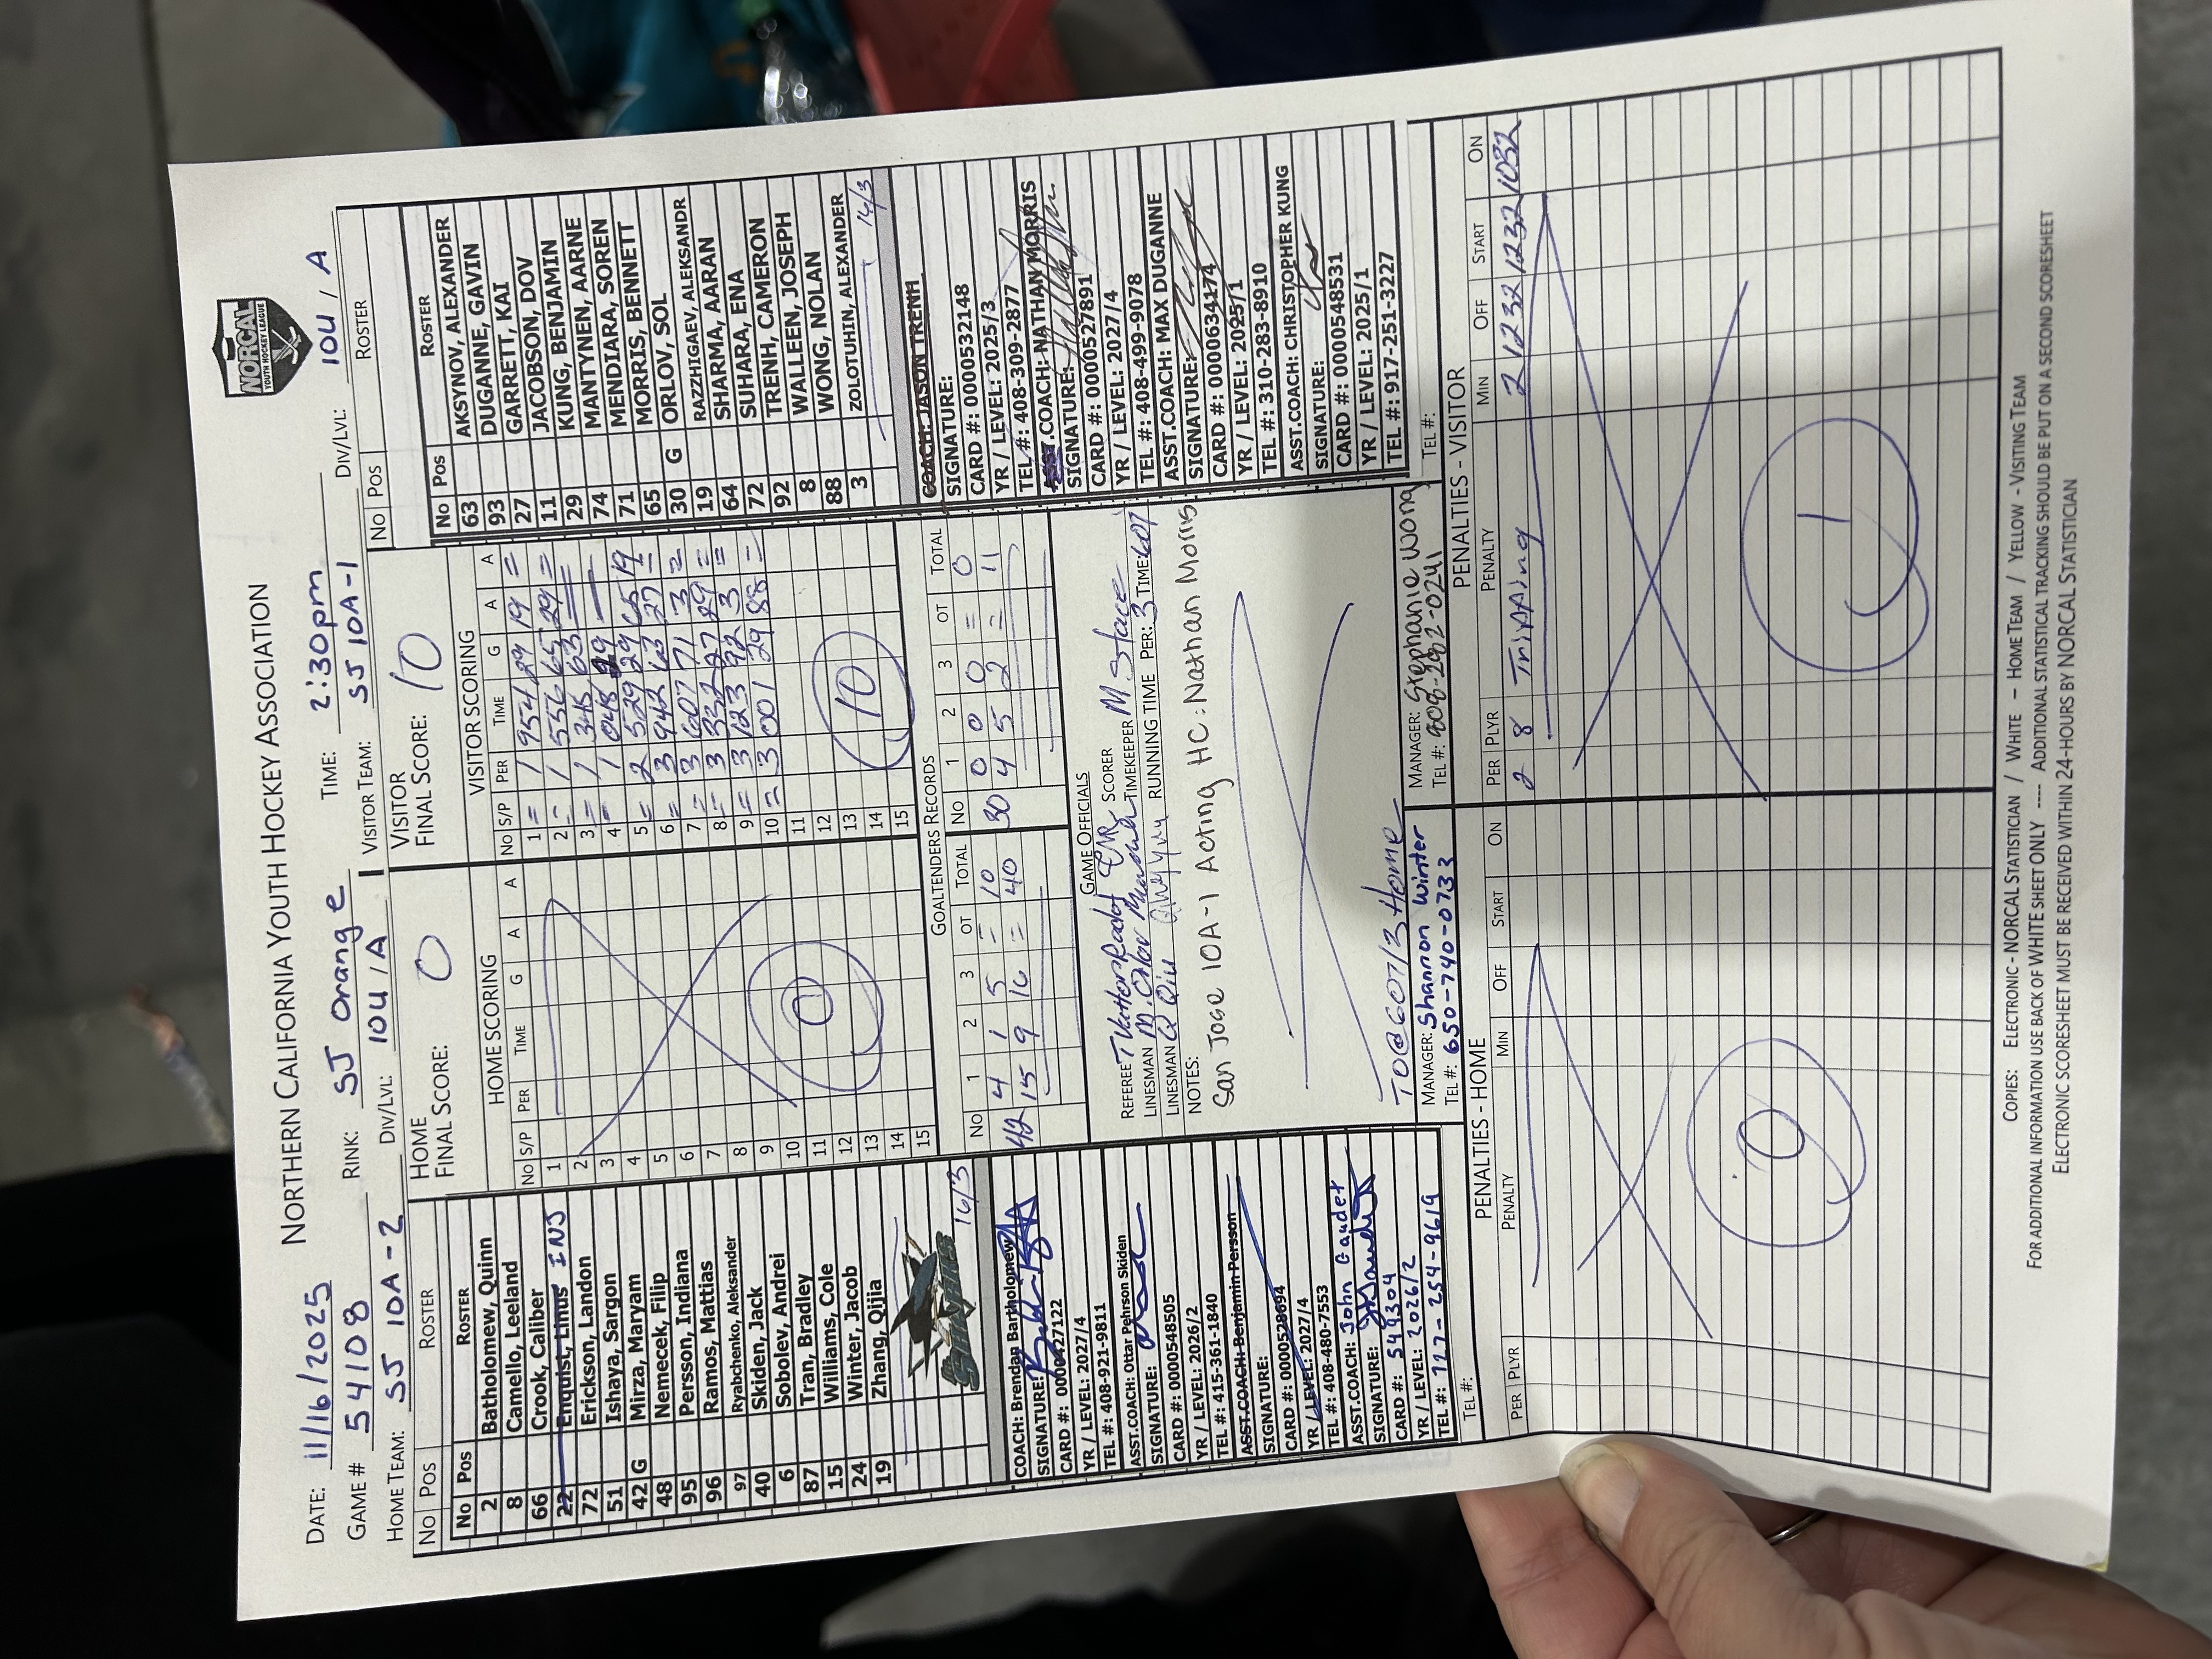 NORTHERN CALIFORNIA YOUTH HOCKEY ASSOCIATION
NORCAL
YOUTH HOCKEY LEAGUE
DATE: 11/16/2025 RINK: SJ Orange TIME: 2:30pm
GAME # 54108 DIV/LVL: 10U/A DIV/LVL: 10U / A
HOME TEAM: SJ 10A-2 VISITOR TEAM: SJ 10A-1
No Pos ROSTER
HOME FINAL SCORE: 0
VISITOR FINAL SCORE: 10
No Pos ROSTER
No Pos ROSTER
2 Batholomew, Quinn
8 Camello, Leeland
66 Crook, Caliber
22 Enquist, Linus INJ
72 Erickson, Landon
51 Ishaya, Sargon
42 G Mirza, Maryam
48 Nemecek, Filip
95 Persson, Indiana
96 Ramos, Mattias
97 Ryabchenko, Aleksander
40 Skiden, Jack
6 Sobolev, Andrei
87 Tran, Bradley
15 Williams, Cole
24 Winter, Jacob
19 Zhang, Qijia
16/3
COACH: Brendan Bartholomew
SIGNATURE:
CARD #: 0000427122
YR / LEVEL: 2027/4
TEL #: 408-921-9811
ASST.COACH: Ottar Pehrson Skiden
SIGNATURE:
CARD #: 0000548505
YR / LEVEL: 2026/2
TEL #: 415-361-1840
ASST.COACH: Benjamin Persson
SIGNATURE:
CARD #: 0000528694
YR / LEVEL: 2027/4
TEL #: 408-480-7553
ASST.COACH: John Gaudet
SIGNATURE:
CARD #: 549304
YR / LEVEL: 2026/2
TEL #: 727-254-9619
HOME SCORING
No S/P PER TIME G A A
1
2
3
4
5
6
7
8
9
10
11
12
13
14
15
0
VISITOR SCORING
No S/P PER TIME G A A
1 = 1 954 29 19 =
2 = 1 556 65 29 =
3 = 1 345 63
4 = 1 048 29
5 = 2 529 29 65 19
6 = 3 942 63 27 =
7 = 3 607 71 3 =
8 = 3 332 27 29 =
9 = 3 123 92 3 =
10 = 3 001 29 88 =
11
12
13
14
15
10
GOALTENDERS RECORDS
No 1 2 3 OT TOTAL No 1 2 3 OT TOTAL
42 4 1 5 = 10 30 0 0 0 = 0
15 9 16 = 40 4 5 2 = 11
GAME OFFICIALS
REFEREE SCORER
LINESMAN TIMEKEEPER M Stace
LINESMAN Q Qiu RUNNING TIME PER: 3 TIME: 607
NOTES:
San Jose 10A-1 Acting HC: Nathan Morris
TO@607/3 Home
No Pos ROSTER
63 AKSYNOV, ALEXANDER
93 DUGANNE, GAVIN
27 GARRETT, KAI
11 JACOBSON, DOV
29 KUNG, BENJAMIN
74 MANTYNEN, AARNE
71 MENDIARA, SOREN
65 MORRIS, BENNETT
30 G ORLOV, SOL
19 RAZZHIGAEV, ALEKSANDR
64 SHARMA, AARAN
72 SUHARA, ENA
92 TRENH, CAMERON
8 WALLEEN, JOSEPH
88 WONG, NOLAN
3 ZOLOTUHIN, ALEXANDER
14/3
COACH: JASON TRENH
SIGNATURE:
CARD #: 0000532148
YR / LEVEL: 2025/3
TEL #: 408-309-2877
ASST.COACH: NATHAN MORRIS
SIGNATURE:
CARD #: 0000527891
YR / LEVEL: 2027/4
TEL #: 408-499-9078
ASST.COACH: MAX DUGANNE
SIGNATURE:
CARD #: 0000634174
YR / LEVEL: 2025/1
TEL #: 310-283-8910
ASST.COACH: CHRISTOPHER KUNG
SIGNATURE:
CARD #: 0000548531
YR / LEVEL: 2025/1
TEL #: 917-251-3227
MANAGER: Shannon Winter
TEL #: 650-740-0733
MANAGER: Stephanie Wong
TEL #:
TEL #:
TEL #:
PENALTIES - HOME
PER PLYR PENALTY MIN OFF START ON
0
PENALTIES - VISITOR
PER PLYR PENALTY MIN OFF START ON
2 8 Tripping 2 1232 1232 1032
1
COPIES: ELECTRONIC - NORCAL STATISTICIAN / WHITE - HOME TEAM / YELLOW - VISITING TEAM
FOR ADDITIONAL INFORMATION USE BACK OF WHITE SHEET ONLY ---- ADDITIONAL STATISTICAL TRACKING SHOULD BE PUT ON A SECOND SCORESHEET
ELECTRONIC SCORESHEET MUST BE RECEIVED WITHIN 24-HOURS BY NORCAL STATISTICIAN